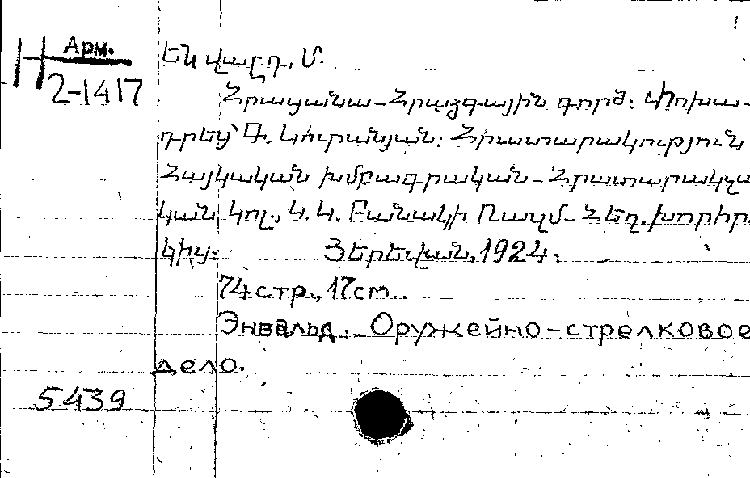 Арм.
Н 2-1417
Ենվալդ. Մ.
Հրացանա-Հրաձգային գործ: Փոխա-
դրեց՝ Գ. Կուրանյան: Հրատարակություն
Հայկական խմբագրական-Հրատարակչա
կան կոլ. Կ. Կ. Բանակի Ռազմ. Հեղ. խորհր
կից: Յերեվան, 1924.
74 стр., 17 cm.
Энвальд. Оружейно-стрелковое
дело.
5439